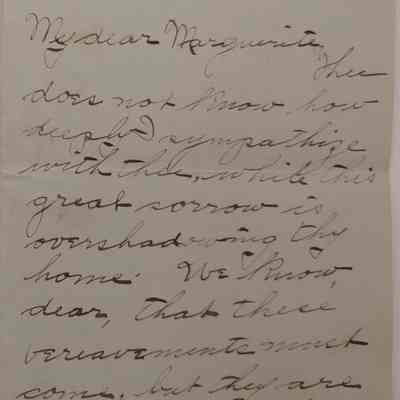 My dear Marguerite,
Thee
does not know how
deeply I sympathize
with thee, while this
great sorrow is
overshadowing thy
home. We know,
dear, that these
bereavements must
come, but they are